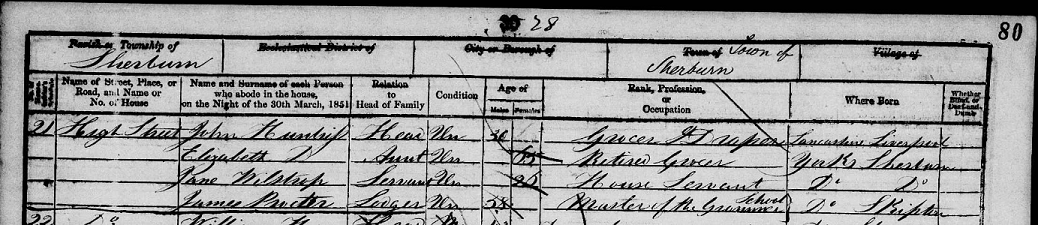 28
80
Parish or Township of Ecclesiastical District of City or Borough of Town of Town of Village of
Sherburn Sherburn
Name of Street, Place, or Road, and Name or No. of House Name and Surname of each Person who abode in the house, on the Night of the 30th March, 1851 Relation to Head of Family Condition Age of Males Females Rank, Profession, or Occupation Where Born Whether Blind, or Deaf and Dumb
21 High Street John Head Un Grocer & Draper Lancashire Liverpool
Elizabeth Do Aunt Un Retired Grocer Yorks Sherburn
Jane Servant Un House Servant Do Do
James Procter Lodger Un Master of the Grammar School Do Skipton
22 Do